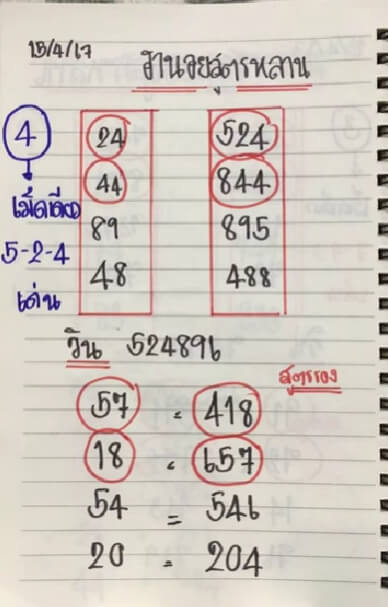 15/4/17
ฮานอยสูตรหลาน
4
เม็ดเดียว
5-2-4
เด่น
24 524
44 844
89 895
48 488
วิน 524896
สูตรรอง
57 = 418
18 = 657
54 = 546
20 = 204